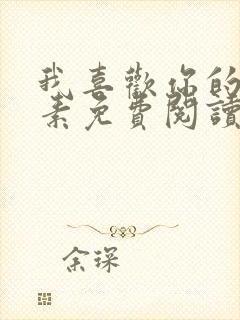 我喜歡你的
素免費閱讀
余琛